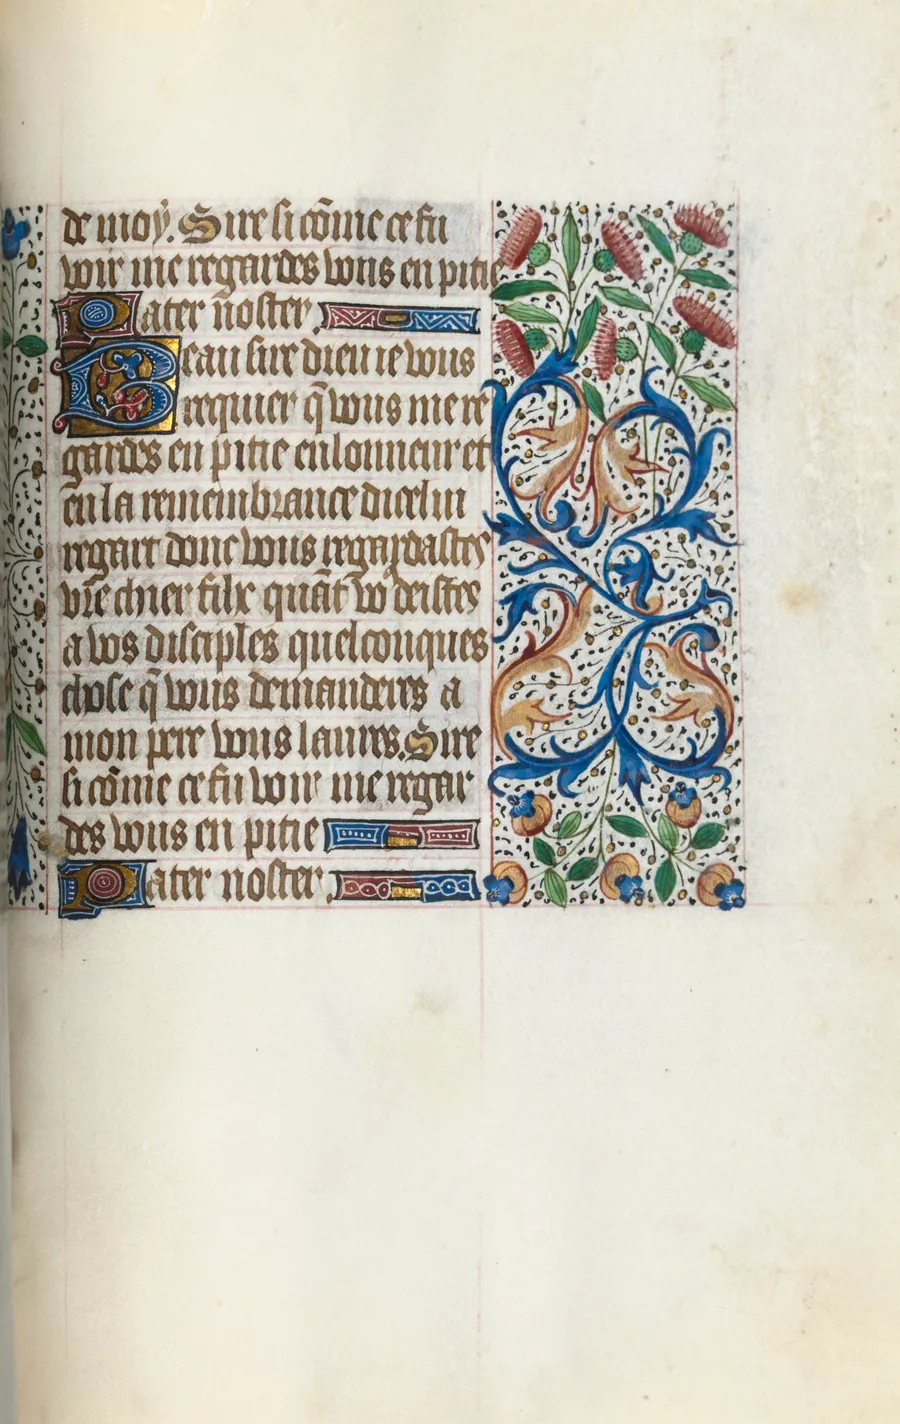 de moy. Sire si cōme ce fu
voir me regardes vous en pitie
Pater noster
Beau sire dieu ie vous
requier q̄ vous me re
gardes en pitie en lonneur et
en la remembrance dicelui
regart donc vous regardastes
vr̄e chier filx quāt vo deistes
a vos disciples quelconques
chose q̄ vous demanderes a
mon pere vous laures. Sire
si cōme ce fu voir me regar
des vous en pitie
Pater noster